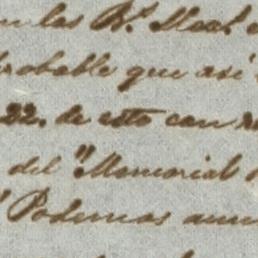 las Rs. Lleal
probable que así
22. de este con
del "Memorial
Podemos